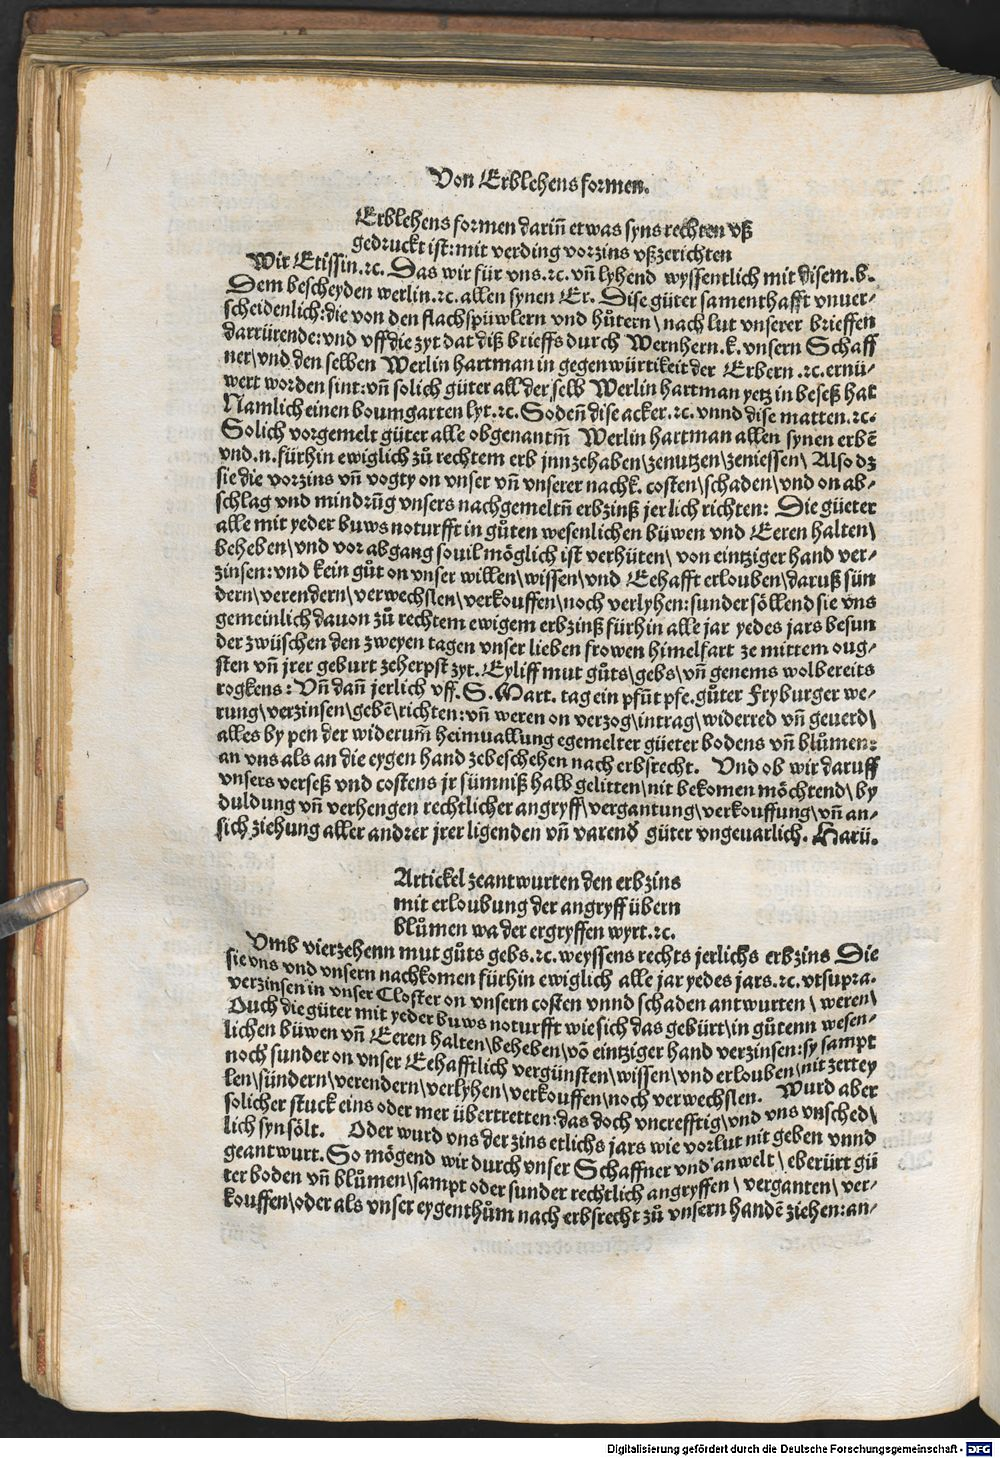 Von Erblehens formen.
Erblehens formen dariñ etwas syns rechten vß
gedruckt ist: mit verding vorzins vßzerichten
Wir Etissin.ꝛc. Das wir für vns.ꝛc. vñ lyhend wyssentlich mit disem.b.
Dem bescheyden werlin.ꝛc. allen synen Er. Dise güter samenthafft vnuer⸗
scheidenlich: die von den flachspüwlern vnd hůtern \ nach lut vnserer brieffen
darrürende: vnd vff die zyt dat diß brieffs durch Wernhern.k. vnsern Schaff
ner \ vnd den selben Werlin hartman in gegenwürtikeit der Erbern .ꝛc. ernü⸗
wert worden sint: vñ solich güter all der selb Werlin hartman yetz in beseß hat
Namlich einen boumgarten lyt.ꝛc. Sodeñ dise acker.ꝛc. vnnd dise matten.ꝛc.
Solich vorgemelt güter alle obgenantm̃ Werlin hartman allen synen erbẽ
vnd.n. fürhin ewiglich zů rechtem erb jnnzehaben \ zenutzen \ zeniessen \ Also dz
sie die vorzins vñ vogty on vnser vñ vnserer nachk. costen \ schaden \ vnd on ab⸗
schlag vnd mindrũg vnsers nachgemeltñ erbzinß jerlich richten: Die güeter
alle mit yeder buws noturfft in gůten wesenlichen büwen vnd Eeren halten \
beheben \ vnd vor abgang souil möglich ist verhüten \ von eintziger hand ver⸗
zinsen: vnd kein gůt on vnser willen \ wissen \ vnd Eehafft erlouben \ daruß sün
dern \ verendern \ verwechslen \ verkouffen \ noch verlyhen: sunder söllend sie vns
gemeinlich dauon zů rechtem ewigem erbzinß fürhin alle jar yedes jars besun
der zwüschen den zweyen tagen vnser lieben frowen himelfart ze mittem oug⸗
sten vñ jrer geburt zeherpst zyt. Eyliff mut gůts \ gebs \ vñ genems wolbereits
rogkens: Vñ dañ jerlich vff. S. Mart. tag ein pfũt pfe. gůter Fryburger we⸗
rung \ verzinsen \ gebẽ \ richten: vñ weren on verzog \ intrag \ widerred vñ geuerd \
alles by pen der widerum̃ heimuallung egemelter güeter bodens vñ blůmen:
an vns als an die eygen hand zebeschehen nach erbsrecht. Vnd ob wir daruff
vnsers verseß vnd costens jr sümniß halb gelitten \ nit bekomen möchtend \ by
duldung vñ verhengen rechtlicher angryff \ vergantung \ verkouffung \ vñ an⸗
sich ziehung aller andrer jrer ligenden vñ varend güter vngeuarlich. Harü.
Artickel zeantwurten den erbzins
mit erloubung der angryff übern
blůmen wa der ergryffen wyrt.ꝛc.
Vmb vierzehenn mut gůts gebs.ꝛc. weyssens rechts jerlichs erbzins Die
sie vns vnd vnsern nachkomen fürhin ewiglich alle jar yedes jars.ꝛc. vtsupra.
verzinsen in vnser Closter on vnsern costen vnnd schaden antwurten \ weren \
Ouch die güter mit yeder buws noturfft wie sich das gebürt \ in gůtenn wesen⸗
lichen büwen vñ Eeren halten \ beheben \ võ eintziger hand verzinsen: sy sampt
noch sunder on vnser Eehafftlich vergünsten \ wissen \ vnd erlouben \ nit zertey
len \ sündern \ verendern \ verlyhen \ verkouffen \ noch verwechslen. Wurd aber
solicher stuck eins oder mer übertretten: das doch vnerefftig \ vnd vns vnsched \
lich syn sölt. Oder wurd vns der zins etlichs jars wie vorlut nit geben vnnd
geantwurt. So mögend wir durch vnser Schaffner vnd anwelt \ eberürt gü
ter boden vñ blůmen \ sampt oder sunder rechtlich angryffen \ verganten \ ver⸗
kouffen \ oder als vnser eygenthům nach erbsrecht zů vnsern handẽ ziehen: an⸗
Digitalisierung gefördert durch die Deutsche Forschungsgemeinschaft - DFG